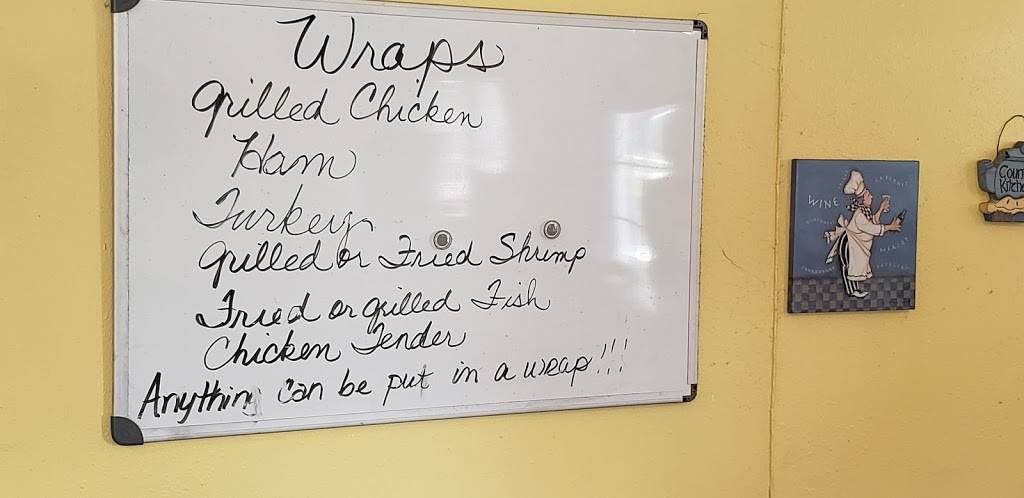 Wraps
Grilled Chicken
Ham
Turkey
Grilled or Fried Shrimp
Fried or grilled Fish
Chicken Tender
Anythin can be put in a wrap!!!
WINE
CABERNET
MERLOT